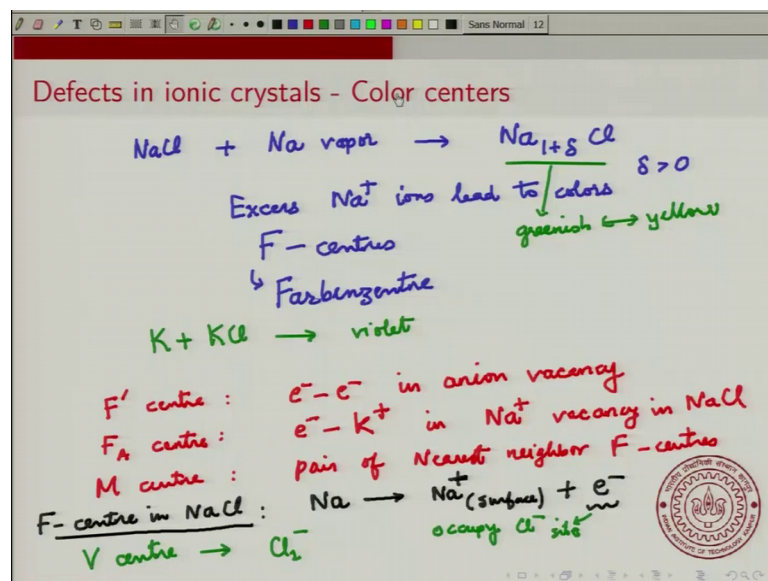 T
Sans Normal 12
Defects in ionic crystals - Color centers
NaCl + Na vapor → Na₁₊δ Cl
δ > 0
Excess Na⁺ ions lead to colors
greenish ↔ yellow
F - centres
↳ Farbenzentre
K + KCl → violet
F' centre : e⁻ - e⁻ in anion vacancy
F_A centre : e⁻ - K⁺ in Na⁺ vacancy in NaCl
M centre : pair of Nearest neighbor F - centres
F - centre in NaCl : Na → Na⁺(surface) + e⁻
occupy Cl⁻ site
V centre → Cl₂⁻
INDIAN INSTITUTE OF TECHNOLOGY KANPUR